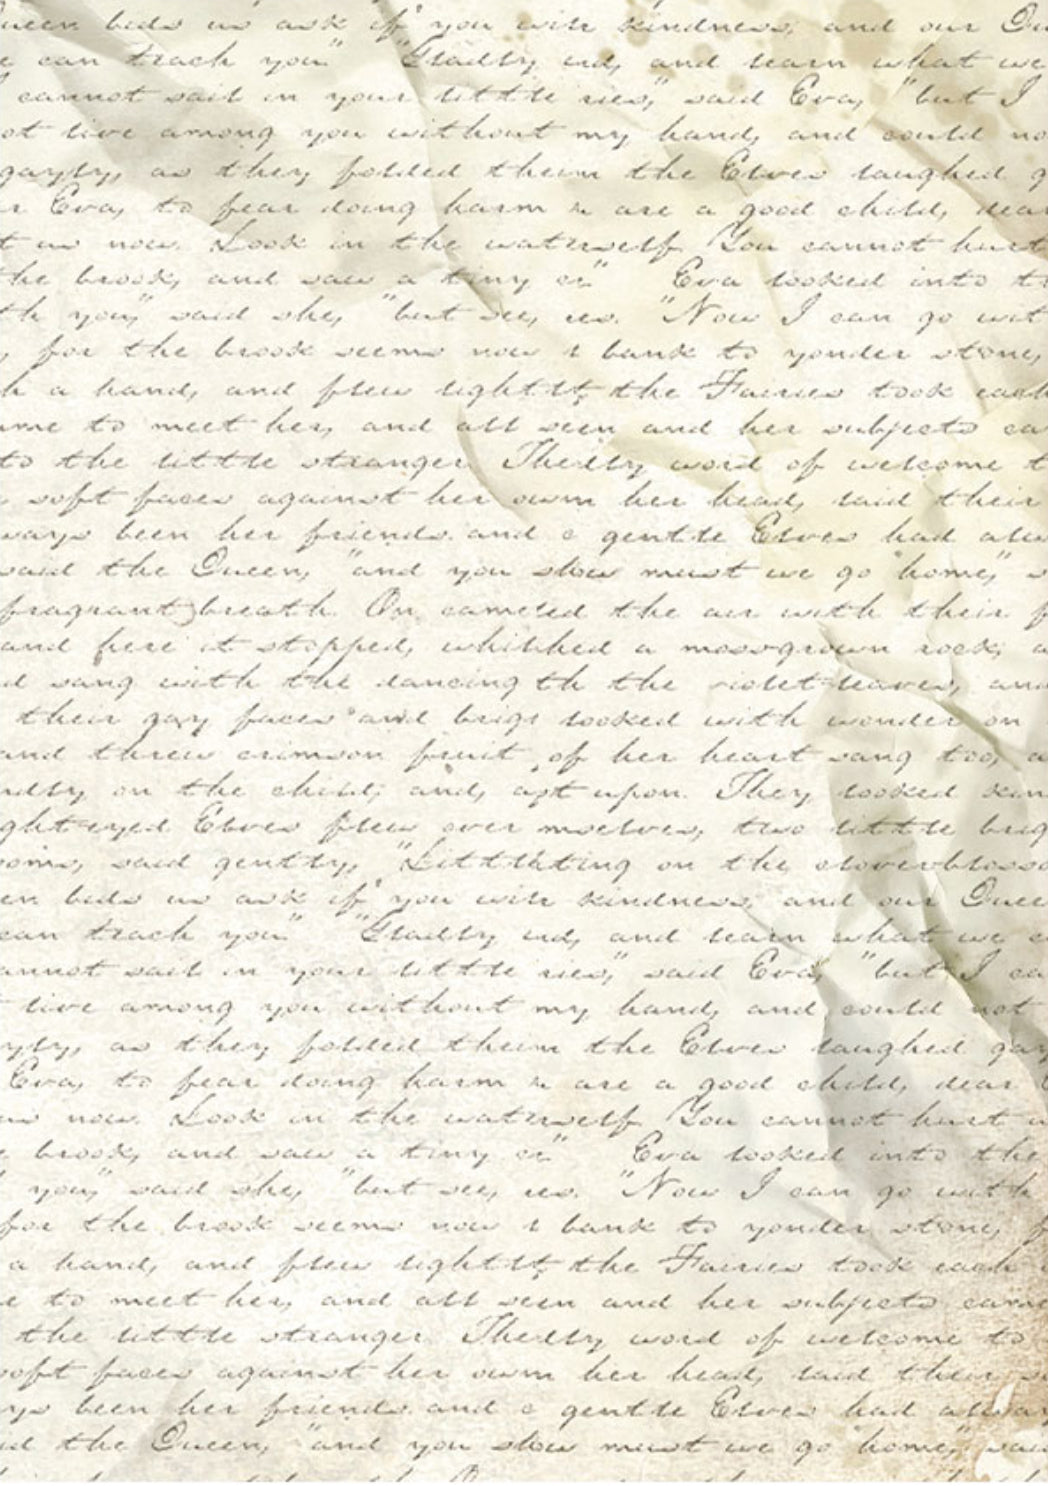 ueen bids us ask if you will kindness, and our Qu
e can teach you." "Gladly and, and learn what we
cannot sail in your little ries," said Eva, "but I
ot live among you without my hand, and could no
gayly, as they folded theim the Elves laughed g
r Eva, to fear doing harm u are a good child, dear
t us now. Look in the waterself. You cannot hurt
he brook, and saw a tiny er." Eva looked into t
th you," said she, "but see, ies. "Now I can go wit
, for the brook seems now r bank to yonder stone,
h a hand, and flew lightlt, the Fairies took each
ame to meet her, and all seen and her subjects ca
to the little stranger. Thedly word of welcome t
soft faces against her own her head, laid their
ways been her friends. and e gentle Elves had alw
said the Queen, "and you slow must we go home," s
fragrant breath. On cameled the air with their f
and here it stopped, whilhed a mossgrown rock, a
d sang with the dancing th the violet-leaves, and
their gay faces and brigs looked with wonder on
and threw crimson fruit of her heart sang too, a
ndly on the child, and, apt upon. They looked kin
ght-eyed Elves flew over mselves, two little brig
oms, said gently, "Littlhting on the cloverblosso
en bids us ask if you will kindness, and our Quee
can teach you." "Gladly and, and learn what we c
annot sail in your little ries," said Eva, "but I ca
live among you without my hand, and could not
yly, as they folded theim the Elves laughed gay
Eva, to fear doing harm u are a good child, dear
us now. Look in the waterself. You cannot hurt u
e brook, and saw a tiny er." Eva looked into the
you," said she, "but see, ies. "Now I can go with
for the brook seems now r bank to yonder stone, f
a hand, and flew lightlt, the Fairies took each
e to meet her, and all seen and her subjects came
the little stranger. Thedly word of welcome to
soft faces against her own her head, laid their s
ys been her friends. and e gentle Elves had alway
id the Queen, "and you slow must we go home," said